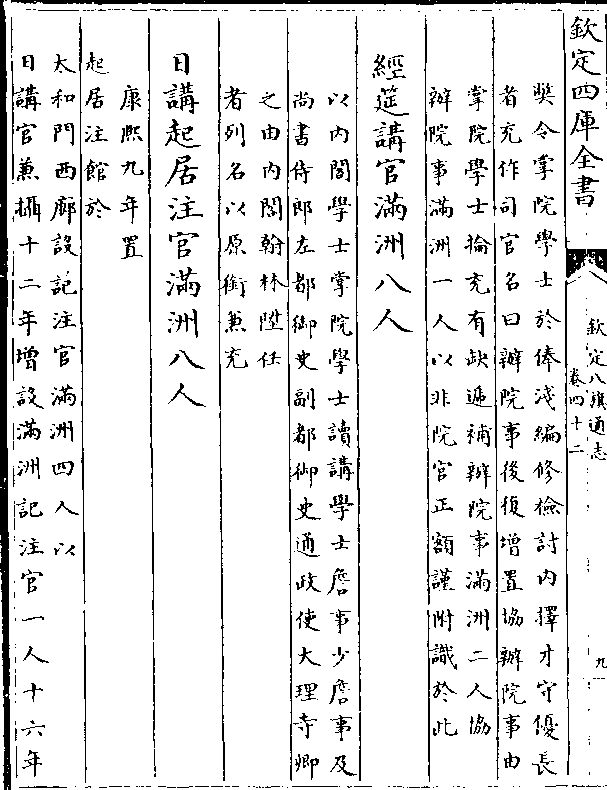 欽定四庫全書
欽定八旗通志
卷四十二
九
獎令掌院學士於俸淺編修檢討内擇才守優長
者充作司官名曰辦院事後復增置協辦院事由
掌院學士掄充有缺遞補辦院事滿洲二人協
辦院事滿洲一人以非院官正額謹附識於此
經筵講官滿洲八人
以内閣學士掌院學士讀講學士詹事少詹事及
尚書侍郎左都御史副都御史通政使大理寺卿
之由内閣翰林陞任
者列名以原銜兼充
日講起居注官滿洲八人
康熙九年置
起居注館於
太和門西廊設記注官滿洲四人以
日講官兼攝十二年增設滿洲記注官一人十六年